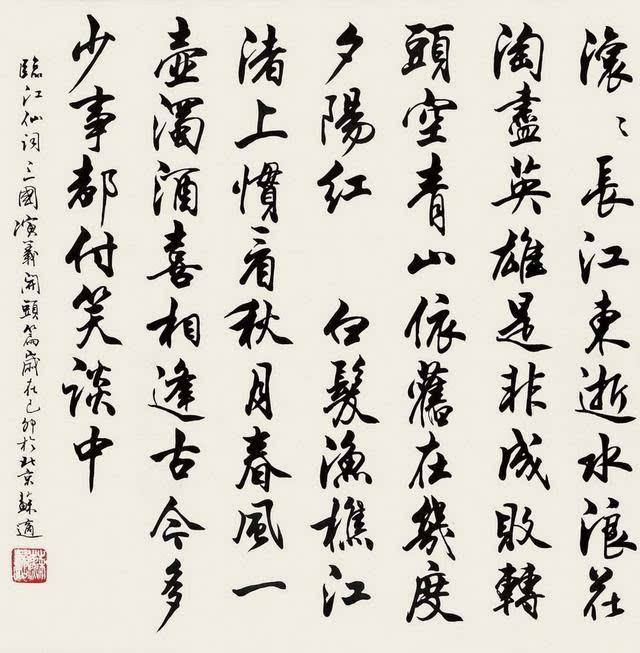 滾〻長江東逝水浪花
淘盡英雄是非成敗轉
頭空青山依舊在幾度
夕陽紅 白髮漁樵江
渚上慣看秋月春風一
壺濁酒喜相逢古今多
少事都付笑談中
臨江仙词三國演義開頭篇歲在己卯於北京蘇適